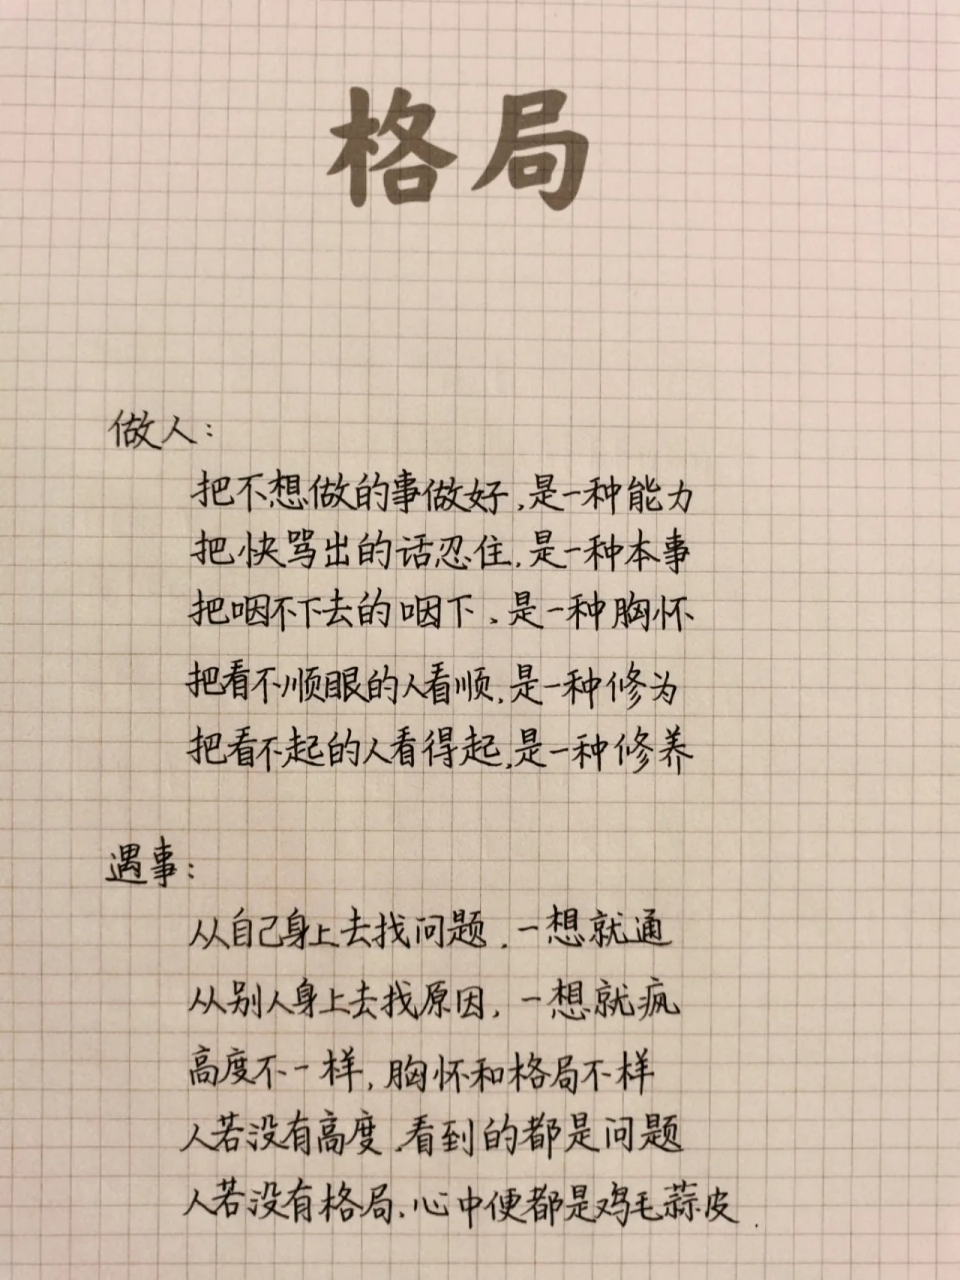 格局
做人:
把不想做的事做好,是一种能力
把快骂出的话忍住,是一种本事
把咽不下去的咽下,是一种胸怀
把看不顺眼的人看顺,是一种修为
把看不起的人看得起,是一种修养
遇事:
从自己身上去找问题,一想就通
从别人身上去找原因,一想就疯
高度不一样,胸怀和格局不样
人若没有高度,看到的都是问题
人若没有格局,心中便都是鸡毛蒜皮.